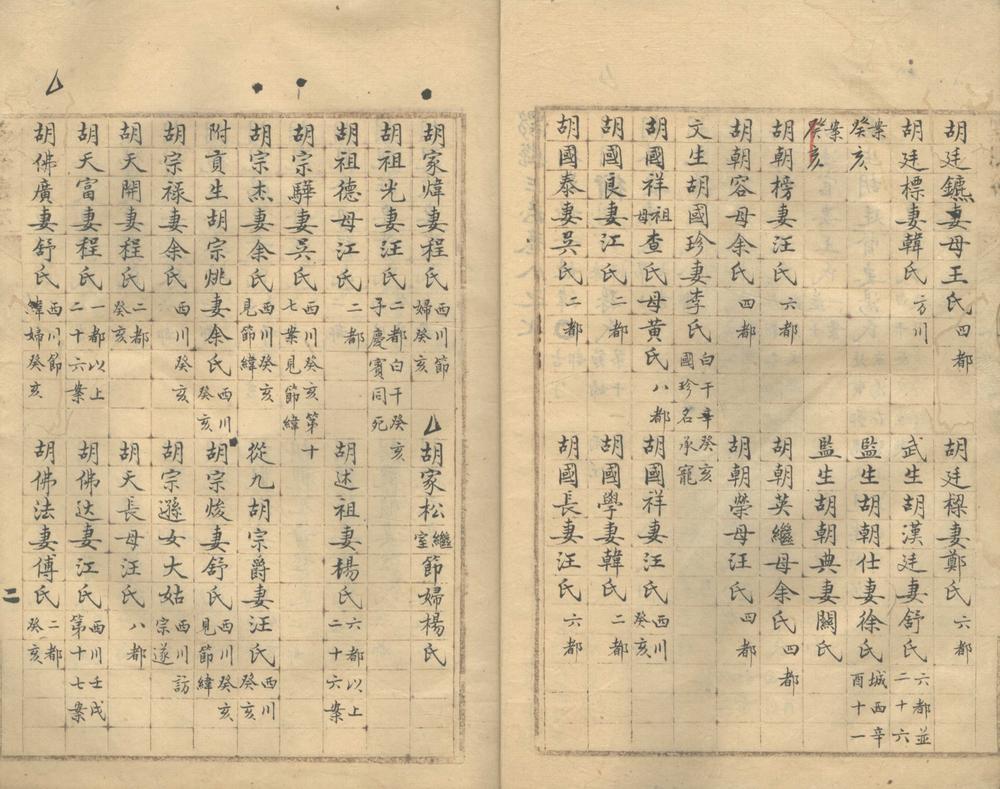 胡廷鑣妻母王氏四都 胡廷樑妻鄭氏六都
胡廷標妻韓氏方川 武生胡漢廷妻舒氏六都並二十六
案癸亥 監生胡朝仕妻徐氏城西辛酉十一
案癸亥 監生胡朝典妻關氏
胡朝榜妻汪氏六都 胡朝英繼母余氏四都
胡朝容母余氏四都 胡朝榮母汪氏四都
文生胡國珍妻李氏白干辛癸亥國珍名承寵
胡國祥祖母查氏母黃氏八都 胡國祥妻汪氏西川癸亥
胡國良妻江氏二都 胡國學妻韓氏二都
胡國泰妻吳氏二都 胡國長妻汪氏六都
胡家煒妻程氏西川節婦癸亥 胡家松繼室節婦楊氏
胡祖光妻汪氏二都白干癸亥子慶賓同死
胡祖德母江氏二都 胡述祖妻楊氏六都以上二十六案
胡宗驊妻吳氏西川癸亥第十七案見節緯
胡宗杰妻余氏西川癸亥見節緯 從九胡宗爵妻汪氏西川癸亥
附貢生胡宗姚妻余氏西川癸亥 胡宗焌妻舒氏西川癸亥見節緯
胡宗祿妻余氏西川癸亥 胡宗遜女大姑西川訪宗遂
胡天開妻程氏二都癸亥 胡天長母汪氏八都
胡天富妻程氏一都以上二十六案 胡佛达妻江氏西川壬戌第十七案
胡佛廣妻舒氏西川節緯婦癸亥 胡佛法妻傅氏二都癸亥
二